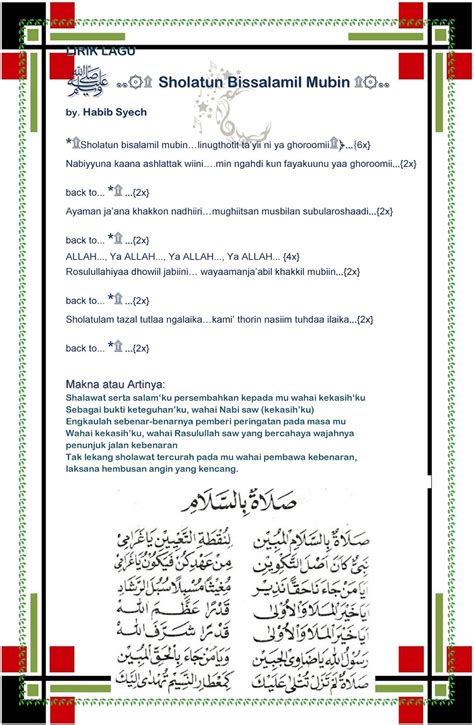 LIRIK LAGU
ﷺ ۩ Sholatun Bissalamil Mubin ۩
by. Habib Syech
*۩Sholatun bisalamil mubin…linugthotit ta'yii ni ya ghoroomii۩...{6x}
Nabiyyuna kaana ashlattak wiini….min ngahdi kun fayakuunu yaa ghoroomii...{2x}
back to... *۩ ...{2x}
Ayaman ja'ana khakkon nadhiiri…mughiitsan musbilan subularoshaadi...{2x}
back to... *۩ ...{2x}
ALLAH..., Ya ALLAH..., Ya ALLAH..., Ya ALLAH... {4x}
Rosulullahiyaa dhowiil jabiini… wayaamanja'abil khakkil mubiin...{2x}
back to... *۩ ...{2x}
Sholatulam tazal tutlaa ngalaika…kami' thorin nasiim tuhdaa ilaika...{2x}
back to... *۩ ...{2x}
Makna atau Artinya:
Shalawat serta salam'ku persembahkan kepada mu wahai kekasih'ku
Sebagai bukti keteguhan'ku, wahai Nabi saw (kekasih'ku)
Engkaulah sebenar-benarnya pemberi peringatan pada masa mu
Wahai kekasih'ku, wahai Rasulullah saw yang bercahaya wajahnya
penunjuk jalan kebenaran
Tak lekang sholawat tercurah pada mu wahai pembawa kebenaran,
laksana hembusan angin yang kencang.
صَلَاةٌ بِالسَّلَامِ
صَلَاةٌ بِالسَّلَامِ الْمُبِينْ لِنُقْطَةِ التَّعْيِينْ يَا غَرَامِي
نَبِيٌّ كَانَ اَصْلَ التَّكْوِينْ مِنْ عَهْدِ كُنْ فَيَكُونْ يَا غَرَامِي
اَيَا مَنْ جَاءَ نَا حَقًّا نَذِيرْ مُغِيثًا مُسْبِلًا سُبُلَ الرَّشَادِ
يَا خَيْرَ الْمَلَا وَالْاُوْلَى قَدْرًا عَظَّمَ اللّٰهْ
يَا خَيْرَ الْمَلَا وَالْاُوْلَى قَدْرًا شَرَّفَ اللّٰهْ
رَسُولُ اللّٰهِ يَا ضَاوِي الْجَبِينْ وَيَا مَنْ جَاءَ بِالْحَقِّ الْمُبِينْ
صَلَاةٌ لَمْ تَزَلْ تُتْلَى عَلَيْكَ كَمِعْطَارِ النَّسِيمْ تُهْدَى اِلَيْكَ